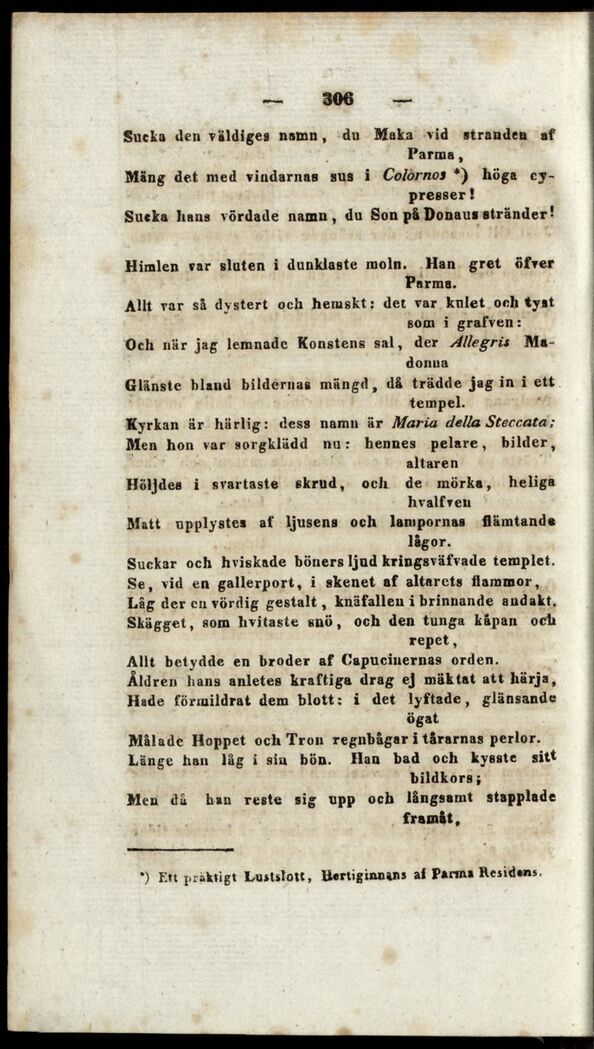 — 306 —
Sucka den väldiges namn, du Maka vid stranden af
Parma,
Mäng det med vindarnas sus i Colornos *) höga cy-
presser!
Sucka hans vördade namn, du Son på Donaus stränder!
Himlen var sluten i dunklaste moln. Han gret öfver
Parma.
Allt var så dystert och hemskt: det var kulet och tyst
som i grafven:
Och när jag lemnade Konstens sal, der Allegris Ma-
donna
Glänste bland bildernas mängd, då trädde jag in i ett
tempel.
Kyrkan är härlig: dess namn är Maria della Steccata;
Men hon var sorgklädd nu: hennes pelare, bilder,
altaren
Höljdes i svartaste skrud, och de mörka, heliga
hvalfven
Matt upplystes af ljusens och lampornas flämtande
lågor.
Suckar och hviskade böners ljud kringsväfvade templet.
Se, vid en gallerport, i skenet af altarets flammor,
Låg der en vördig gestalt, knäfallen i brinnande andakt.
Skägget, som hvitaste snö, och den tunga kåpan och
repet,
Allt betydde en broder af Capucinernas orden.
Åldren hans anletes kraftiga drag ej mäktat att härja,
Hade förmildrat dem blott: i det lyftade, glänsande
ögat
Målade Hoppet och Tron regnbågar i tårarnas perlor.
Länge han låg i sin bön. Han bad och kysste sitt
bildkors;
Men då han reste sig upp och långsamt stapplade
framåt,
*) Ett präktigt Lustslott, Hertiginnans af Parma Residens.